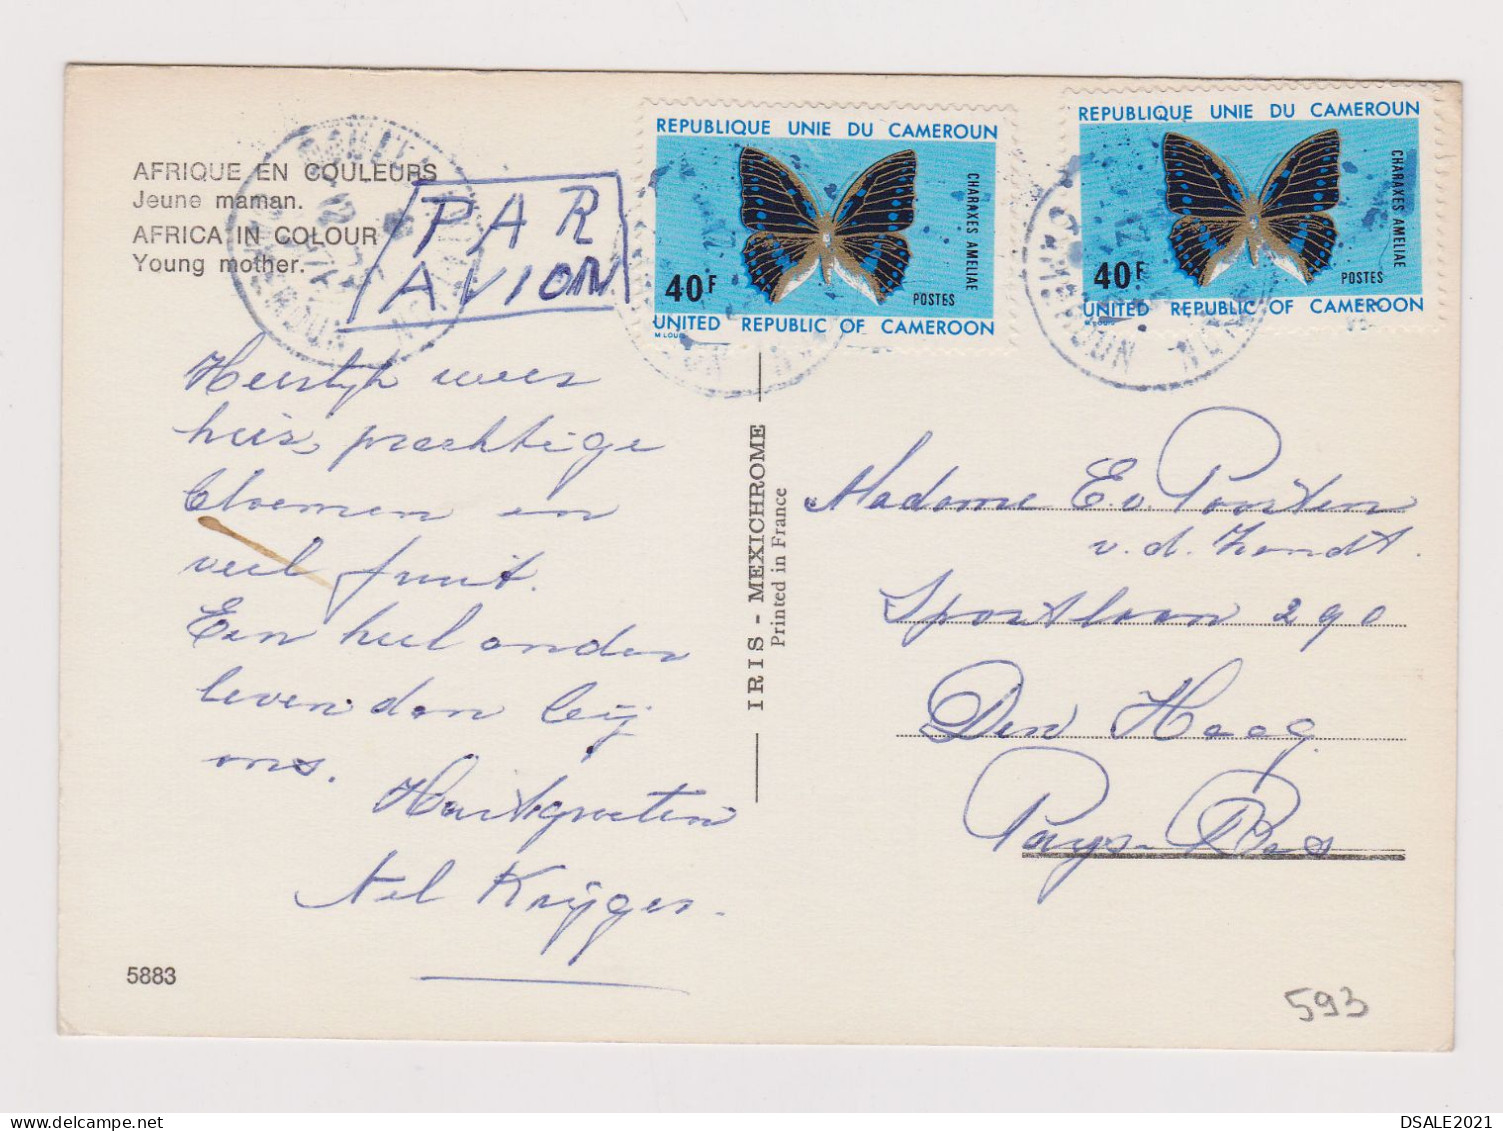 AFRIQUE EN COULEURS
Jeune maman.
AFRICA IN COLOUR
Young mother.
PAR
AVION
REPUBLIQUE UNIE DU CAMEROUN
CHARAXES AMELIAE
40F
POSTES
UNITED REPUBLIC OF CAMEROON
M LOUIS
REPUBLIQUE UNIE DU CAMEROUN
CHARAXES AMELIAE
40F
POSTES
UNITED REPUBLIC OF CAMEROON
M LOUIS
CAMEROUN
Heerlijk weer
hier, prachtige
bloemen en
veel fruit.
Een heel ander
leven dan bij
ons.
Hartgroeten
Nel Krijger.
5883
IRIS - MEXICHROME
Printed in France
Madame E. v. Poorten
v. d. Zandt.
Sportlaan 290
Den Haag
Pays-Bas
593
DSALE2021